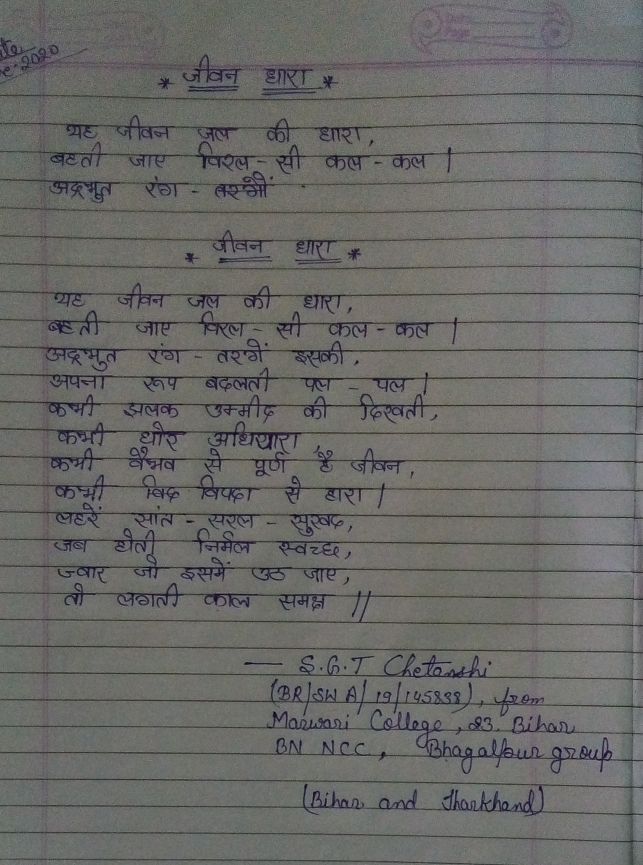 2020
* जीवन धारा *
यह जीवन जल की धारा,
बहती जाए विरल - सी कल - कल |
अद्भुत रंग - तरंगें
* जीवन धारा *
यह जीवन जल की धारा,
बहती जाए विरल - सी कल - कल |
अद्भुत रंग - तरंगें इसकी,
अपना रूप बदलती पल - पल |
कभी झलक उम्मीद की दिखती,
कभी घोर अंधियारा,
कभी वैभव से पूर्ण है जीवन,
कभी विद विपदा से हारा |
लहरें सांत - सरल - सुखद,
जब होती निर्मल स्वच्छ,
ज्वार जो इसमें उठ जाए,
तो लगती काल समक्ष ||
— S.G.T Chetanshi
(BR/SW A/19/145838), from
Marwari College, 23. Bihar
BN NCC, Bhagalpur group
(Bihar and Jharkhand)